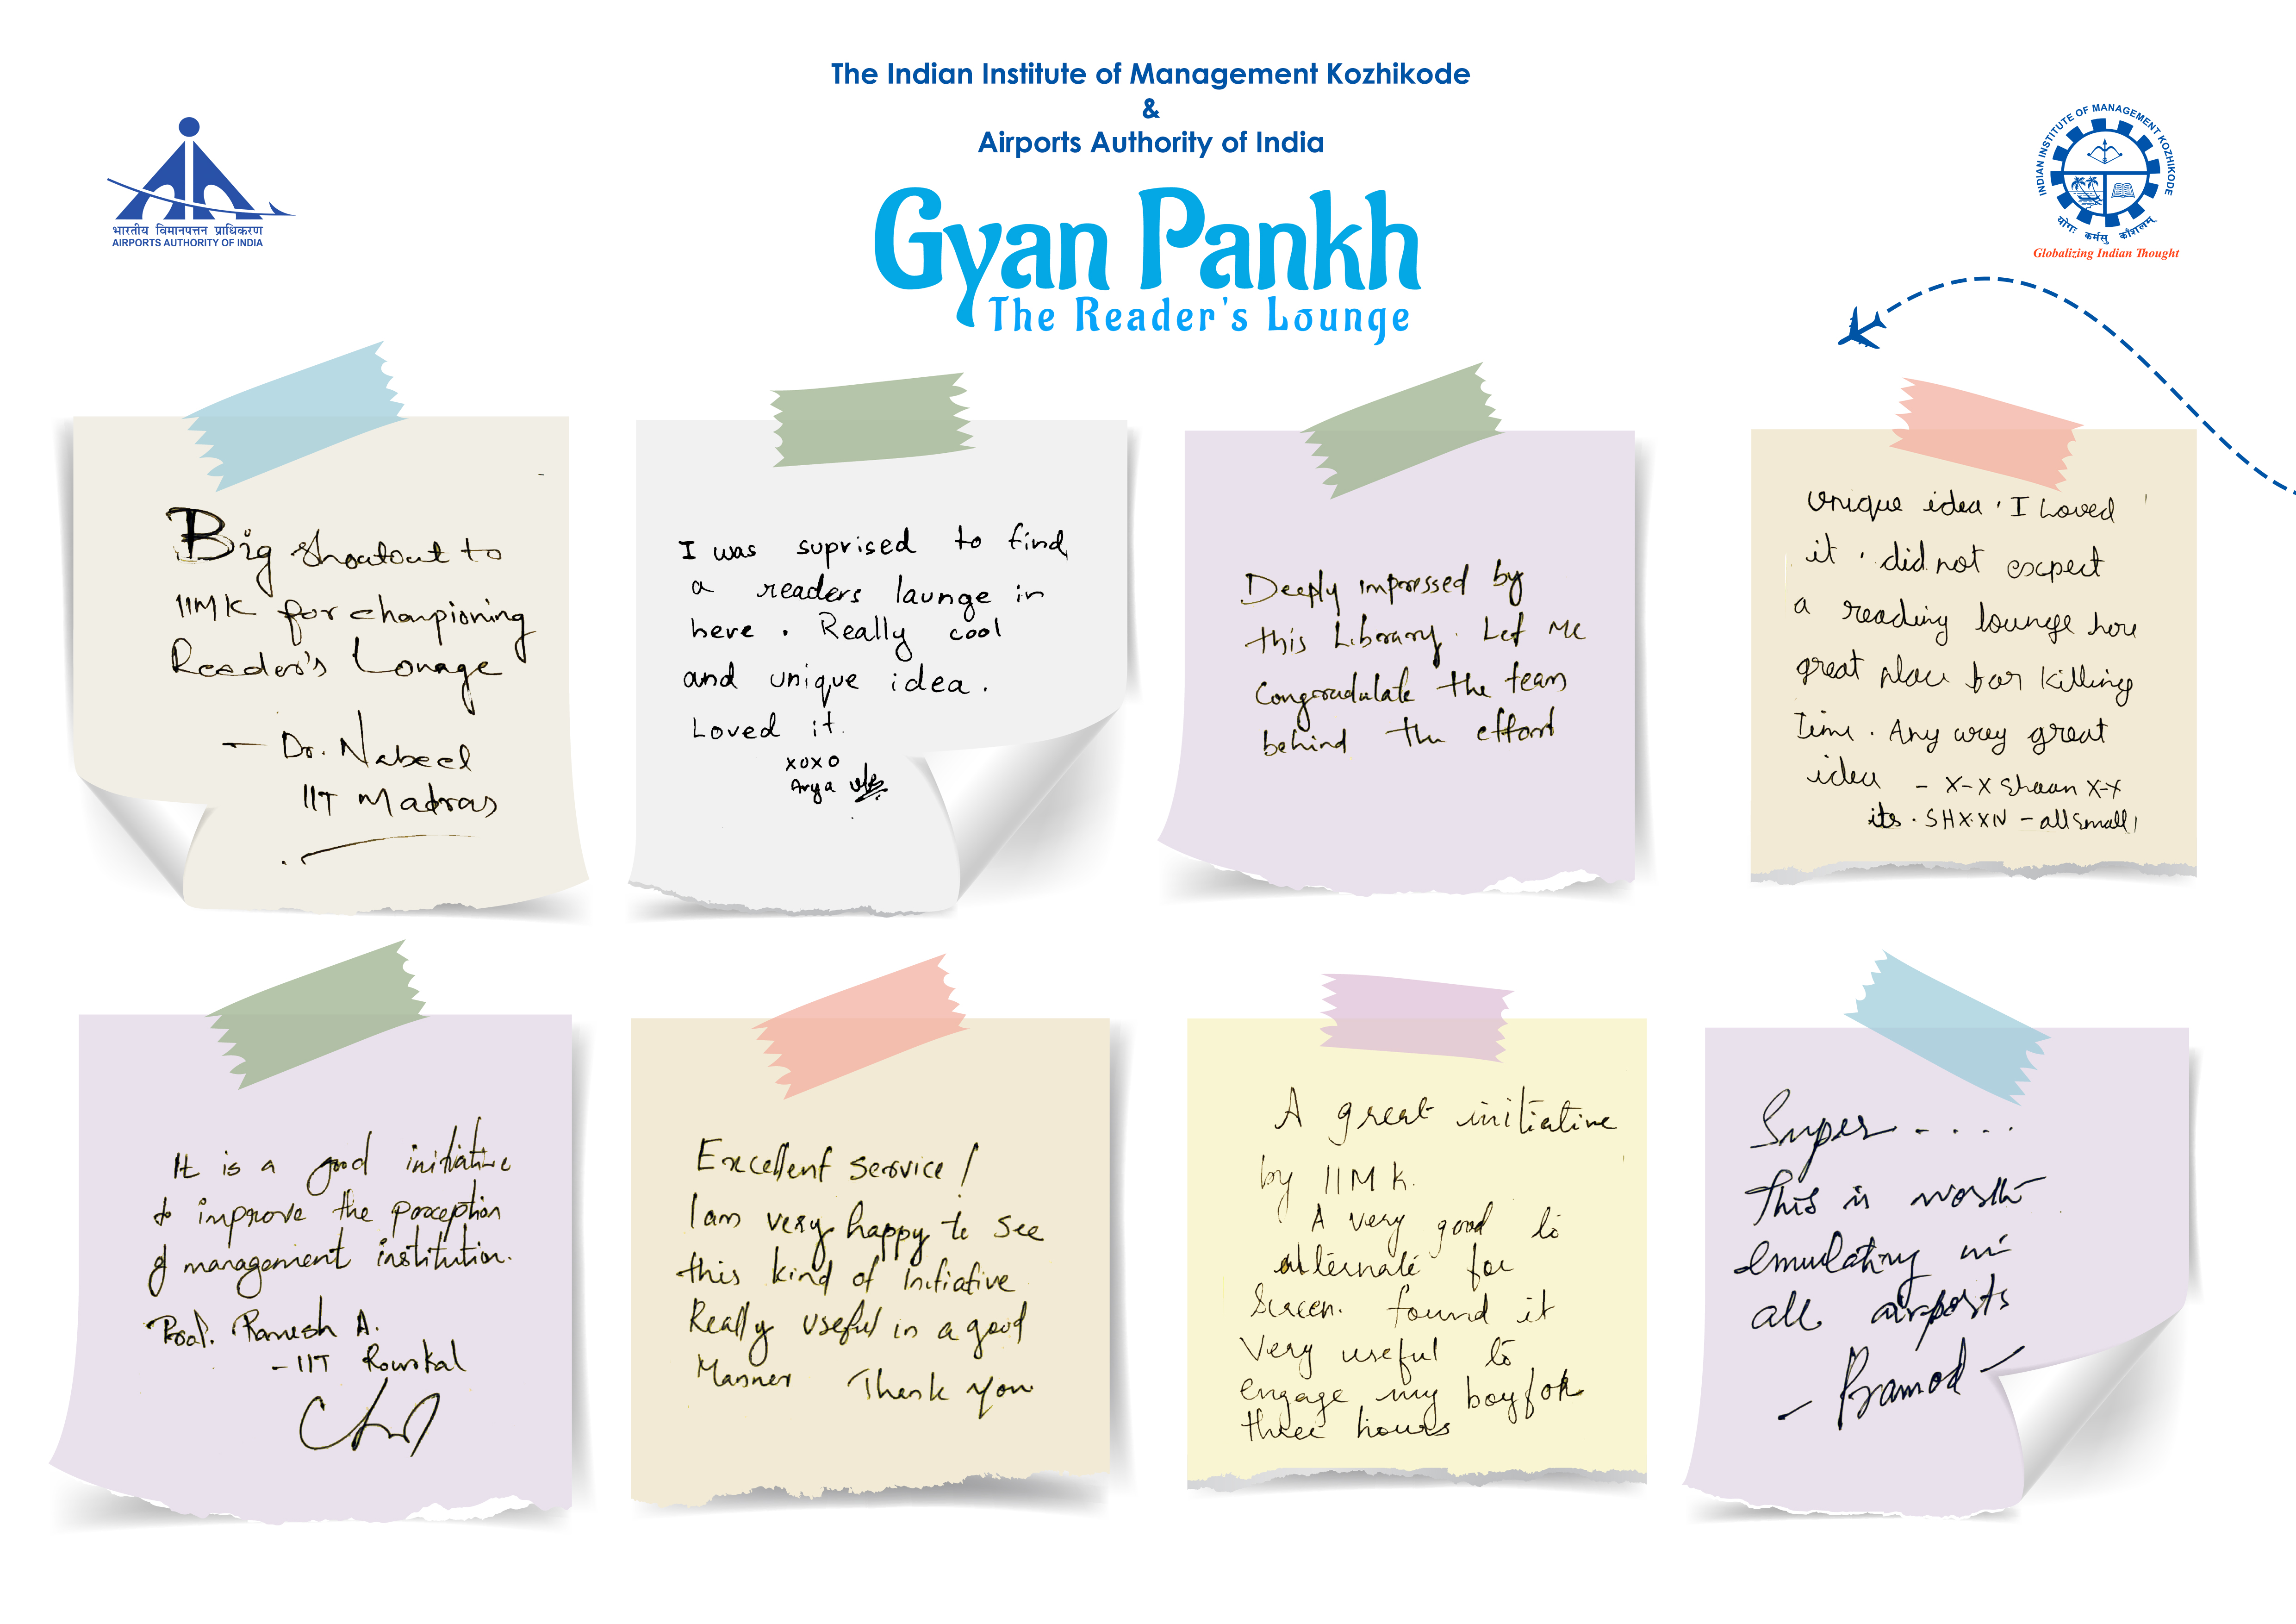 The Indian Institute of Management Kozhikode
&
Airports Authority of India
भारतीय विमानपत्तन प्राधिकरण
AIRPORTS AUTHORITY OF INDIA
Gyan Pankh
The Reader's Lounge
INDIAN INSTITUTE OF MANAGEMENT KOZHIKODE
योगः कर्मसु कौशलम्
Globalizing Indian Thought
Big shoutout to
IIMK for championing
Reader's Lounge
— Dr. Nabeel
IIT Madras
I was suprised to find
a readers launge in
here. Really cool
and unique idea.
Loved it.
xoxo
Arya
Deeply impressed by
this Library. Let me
Congradulate the team
behind the effort
Unique idea. I Loved
it. did not expect
a reading lounge here
great place for killing
time. Any way great
idea - X-X Shaan X-X
its. SHX.XN - all small
It is a good initiative
to improve the perception
of management institution.
Prof. Ramesh A.
- IIT
Excellent service!
I am very happy to see
this kind of Initiative
Really useful in a good
Manner Thank you
A great initiative
by IIM K.
A very good to
alternate for
Screen. found it
very useful to
engage my boy for
three hours
Super....
This is worth
emulating in
all airports
- Pramod -